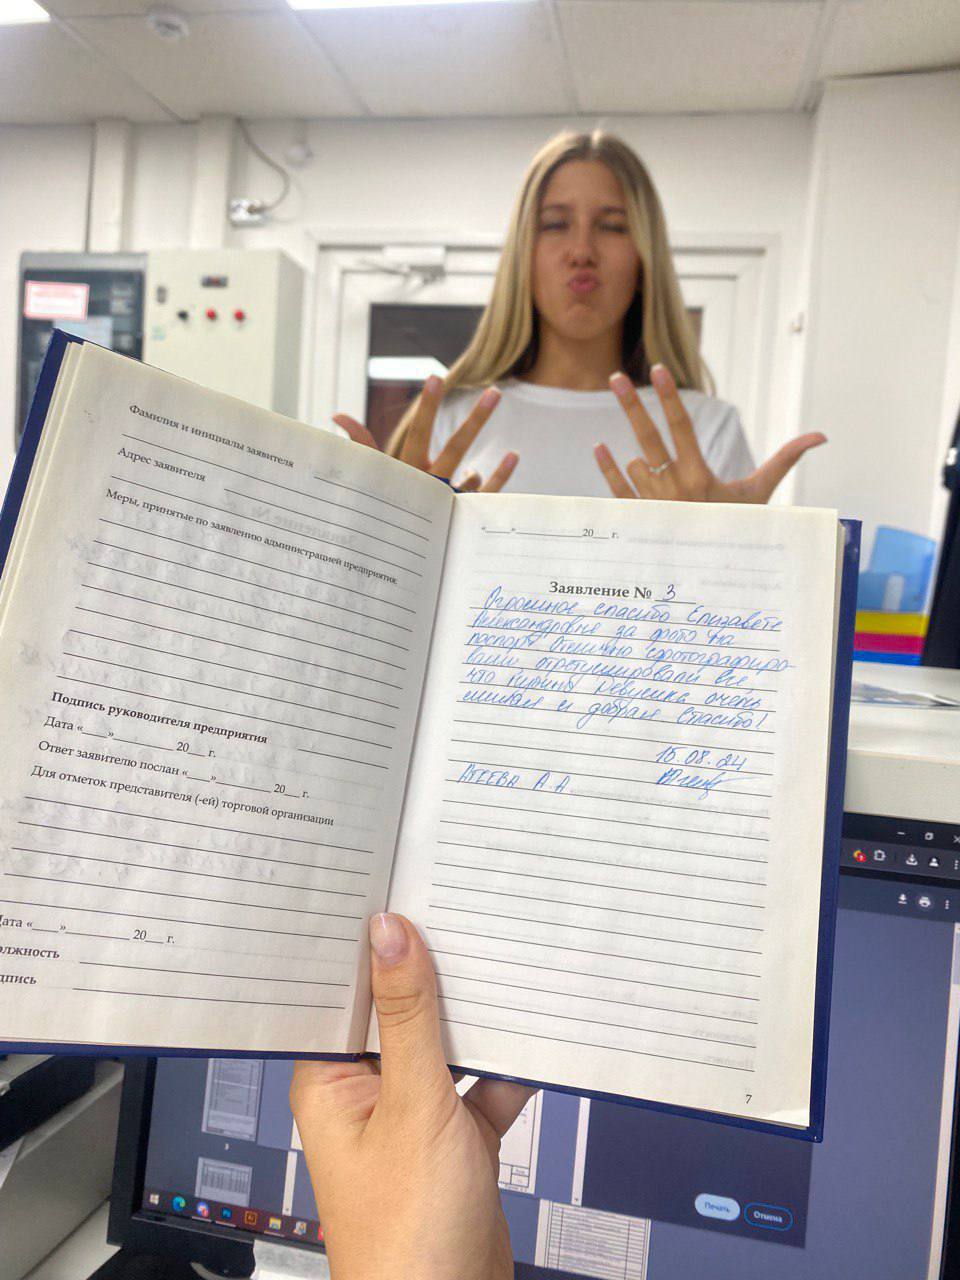 Фамилия и инициалы заявителя
Адрес заявителя
Меры, принятые по заявлению администрацией предприятия:
Подпись руководителя предприятия
Дата «___»________ 20__ г.
Ответ заявителю послан «___»________ 20__ г.
Для отметок представителя (-ей) торговой организации
Дата «___»________ 20__ г.
олжность
дпись
«___»________20__ г.
Заявление № 3
Огромное спасибо Елизавете
Александровне за фото на
паспорт. Отлично сфотографиро-
вали, отретушировали все
что нужно. Девушка очень
милая и добрая. Спасибо!
15.08.24
Агеева А.А.
7
3
Печать
Отмена